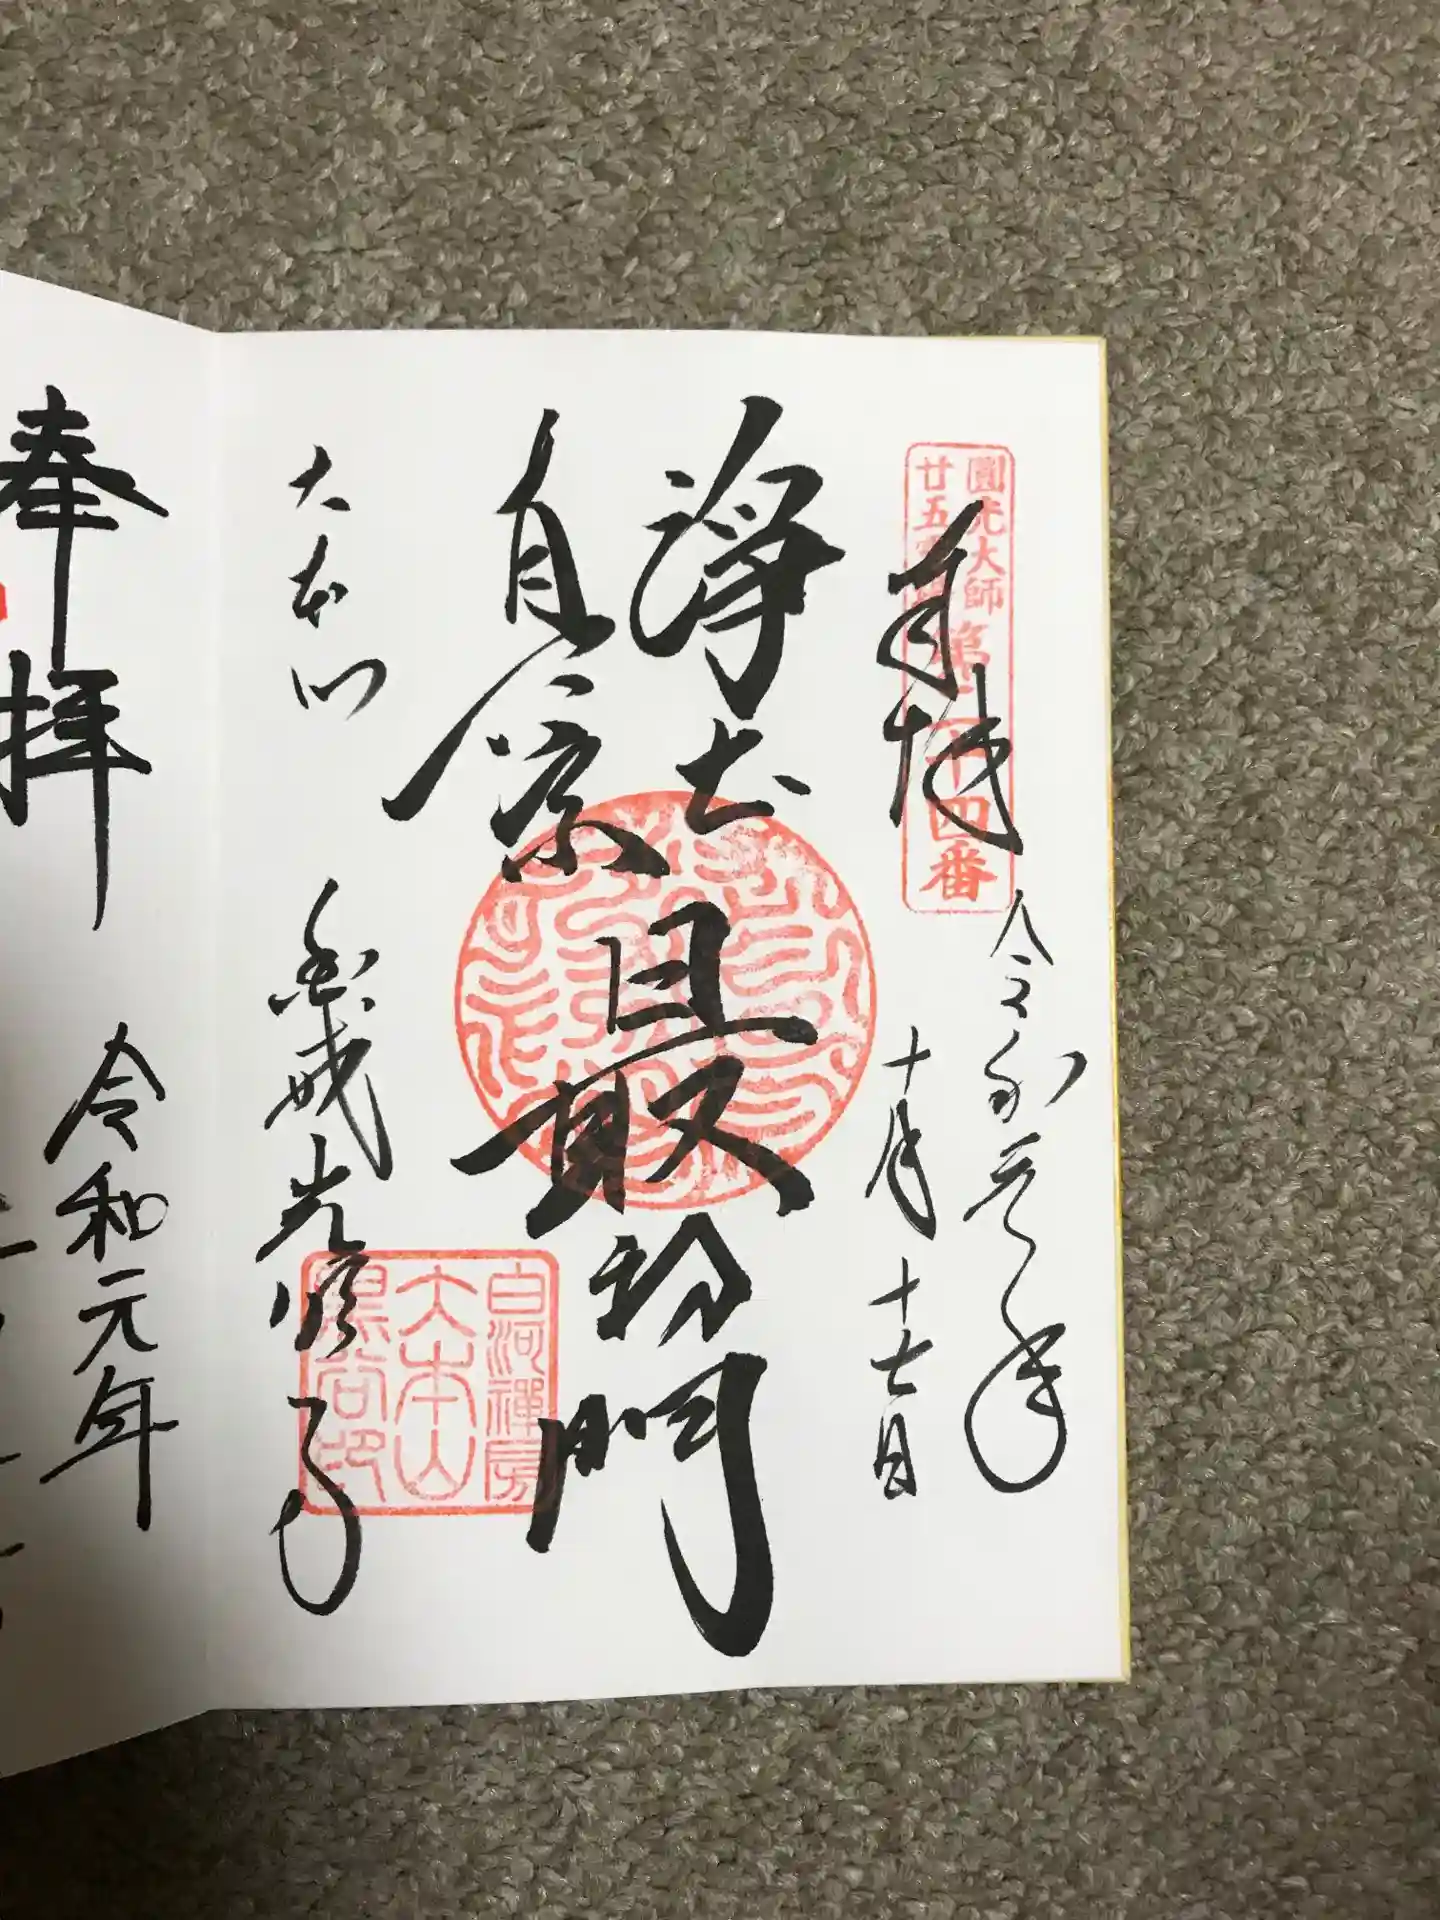 圓光大師
廿五霊場
第二十四番
奉拝
令和元年
十月十七日
浄土真宗最初門
大本山
金戒光明寺
白河禪房
大本山
黒谷印
奉拝
令和元年